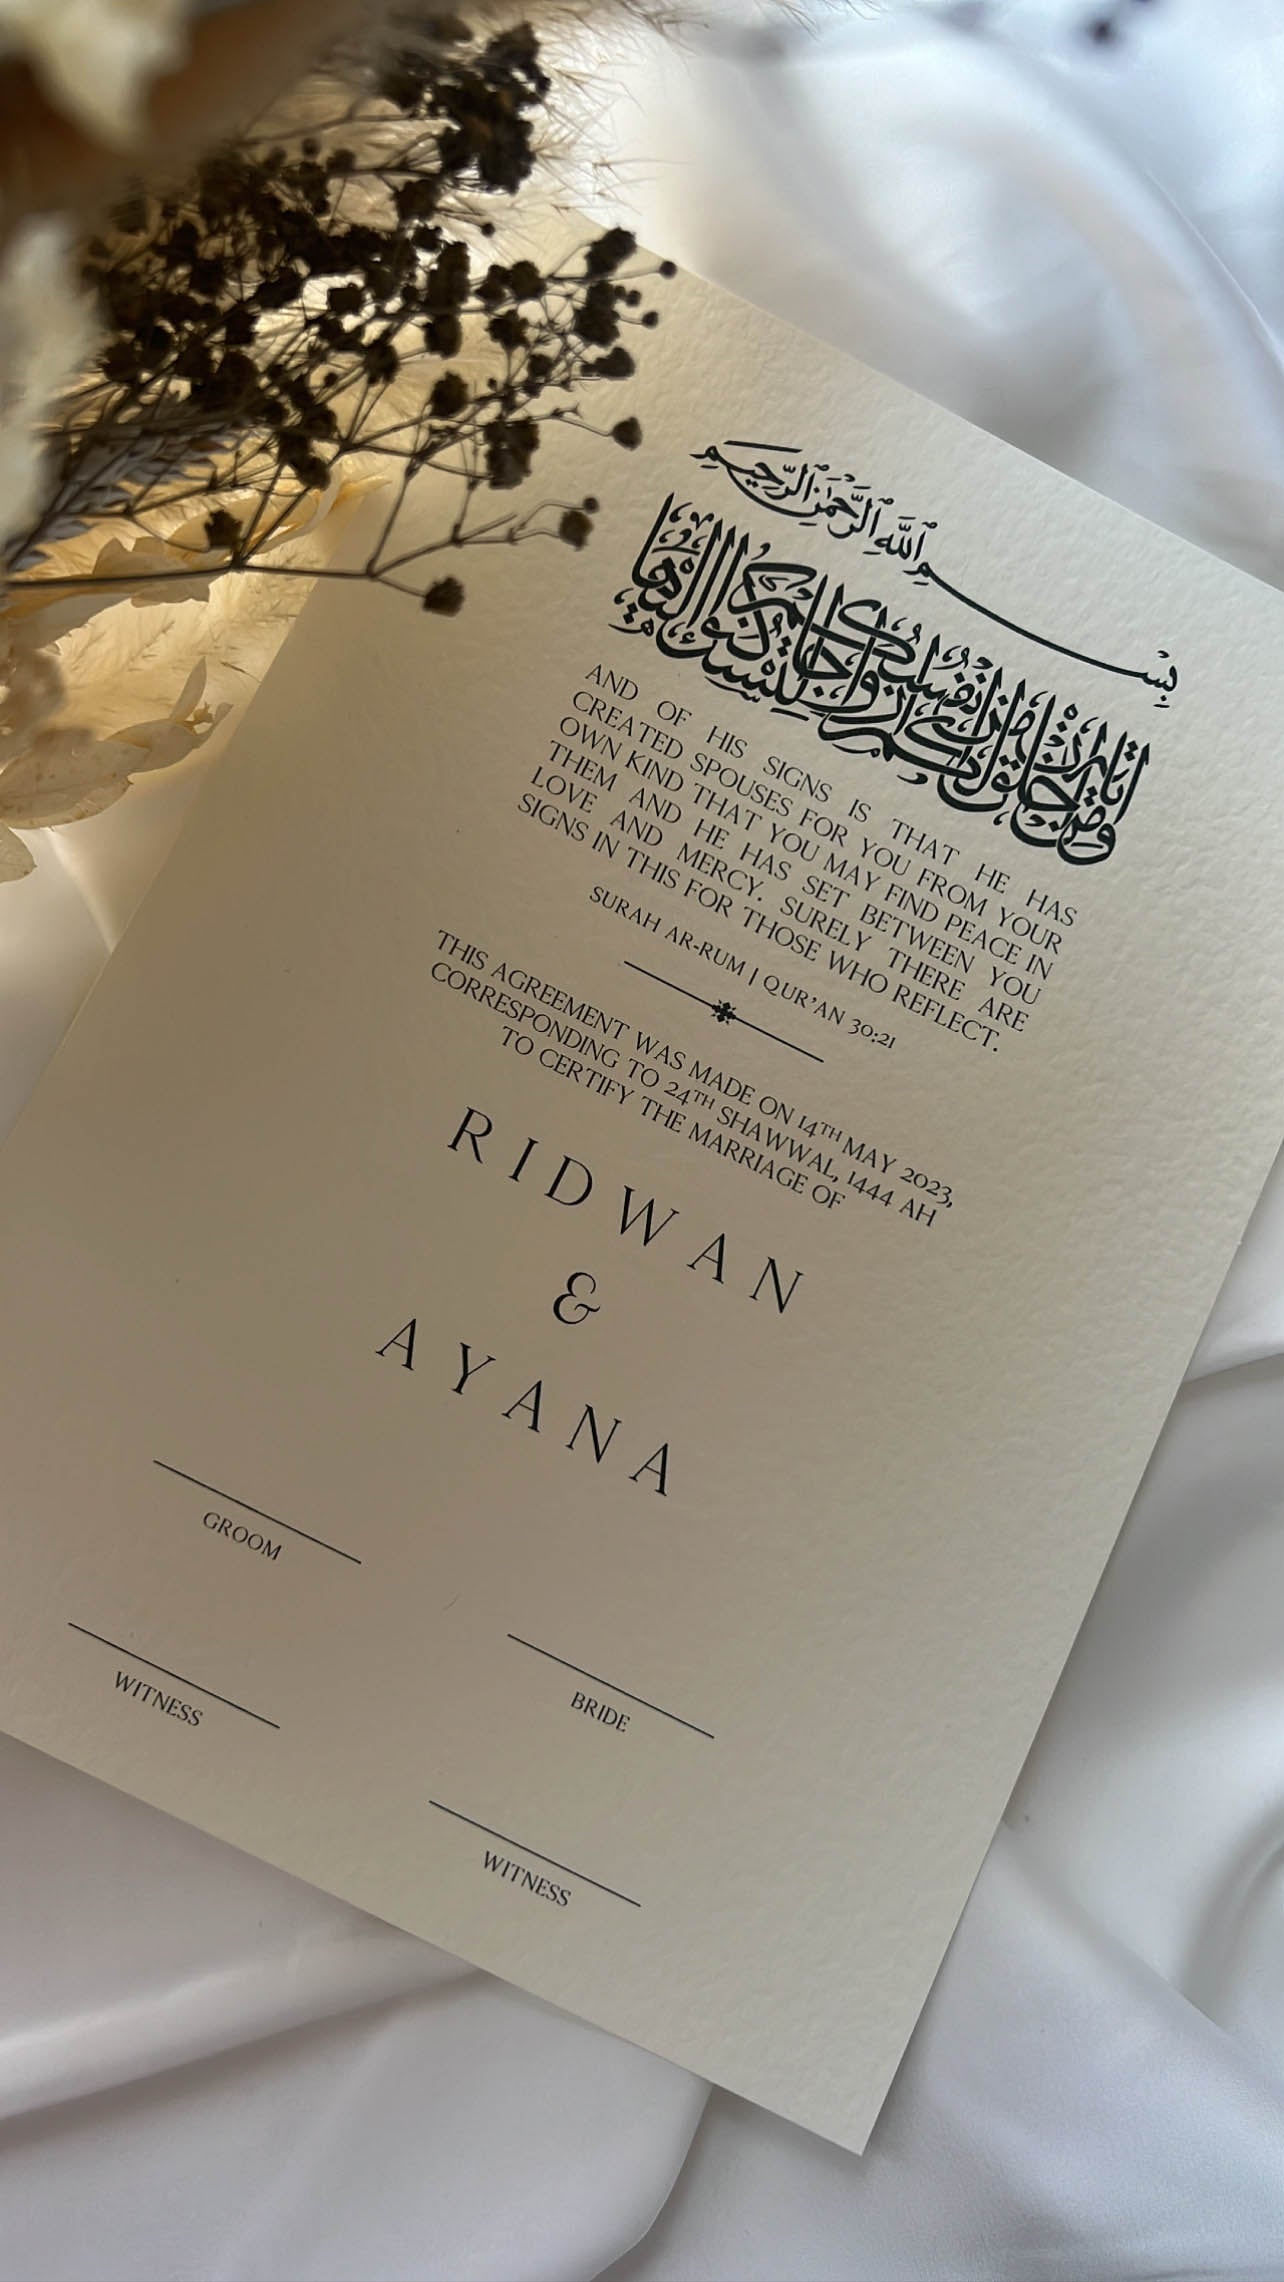 بِسْمِ ٱللَّهِ ٱلرَّحْمَٰنِ ٱلرَّحِيمِ
ومن آياته أن خلق لكم من أنفسكم أزواجا لتسكنوا إليها
AND OF HIS SIGNS IS THAT HE HAS
CREATED SPOUSES FOR YOU FROM YOUR
OWN KIND THAT YOU MAY FIND PEACE IN
THEM AND HE HAS SET BETWEEN YOU
LOVE AND MERCY. SURELY THERE ARE
SIGNS IN THIS FOR THOSE WHO REFLECT.
SURAH AR-RUM | QUR'AN 30:21
THIS AGREEMENT WAS MADE ON 14TH MAY 2023,
CORRESPONDING TO 24TH SHAWWAL, 1444 AH
TO CERTIFY THE MARRIAGE OF
RIDWAN
&
AYANA
GROOM
BRIDE
WITNESS
WITNESS